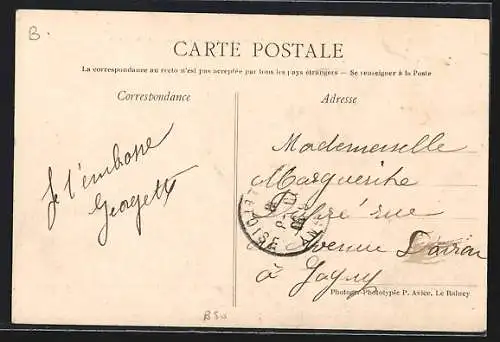 B.
CARTE POSTALE
La correspondance au recto n'est pas acceptée par tous les pays étrangers — Se renseigner à la Poste
Correspondance
Adresse
Je t'embrasse
Georgette
Mademoiselle
Marguerite
rue
Avenue
à Gagny
Photogr-Phototypie P. Avice, Le Raincy